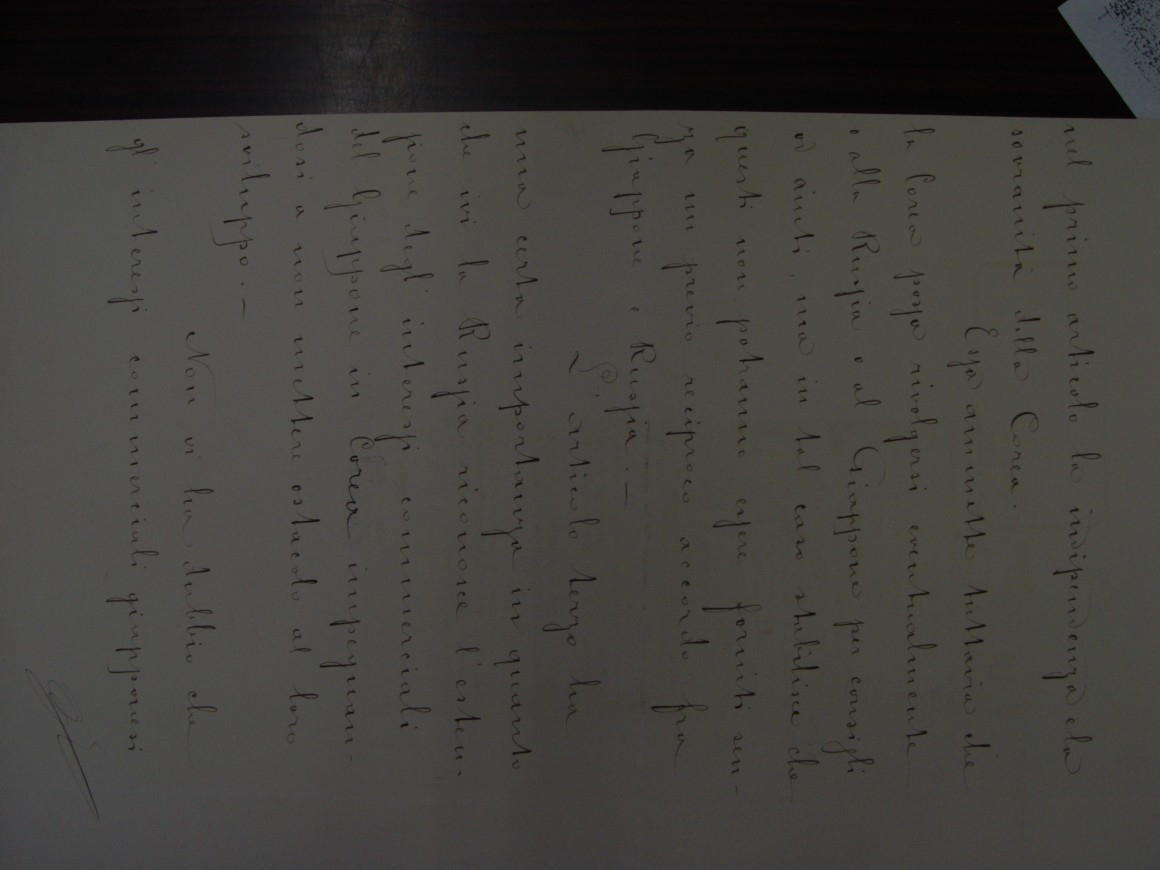 nel primo articolo la indipendenza e la
sovranità della Corea.
Essa ammette tuttavia che
la Corea possa rivolgersi eventualmente
o alla Russia o al Giappone per consigli
od aiuti, ma in tal caso stabilisce che
questi non potranno essere forniti sen-
za un previo reciproco accordo fra
Giappone e Russia. —
L'articolo terzo ha
una certa importanza in quanto
che ivi la Russia riconosce l'esten-
sione degl'interessi commerciali
del Giappone in Corea impegnan-
dosi a non mettere ostacolo al loro
sviluppo. —
Non vi ha dubbio che
gli interessi commerciali giapponesi